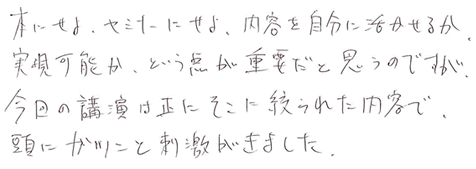 本にせよ、セミナーにせよ、内容を自分に活かせるか、
実現可能か、という点が重要だと思うのですが、
今回の講演は正にそこに絞られた内容で、
頭にガツンと刺激がきました。